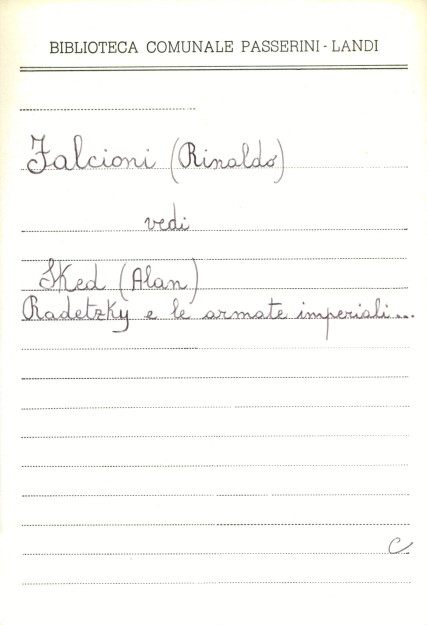 BIBLIOTECA COMUNALE PASSERINI - LANDI
Falcioni (Rinaldo)
vedi
Sked (Alan)
Radetzky e le armate imperiali...
C